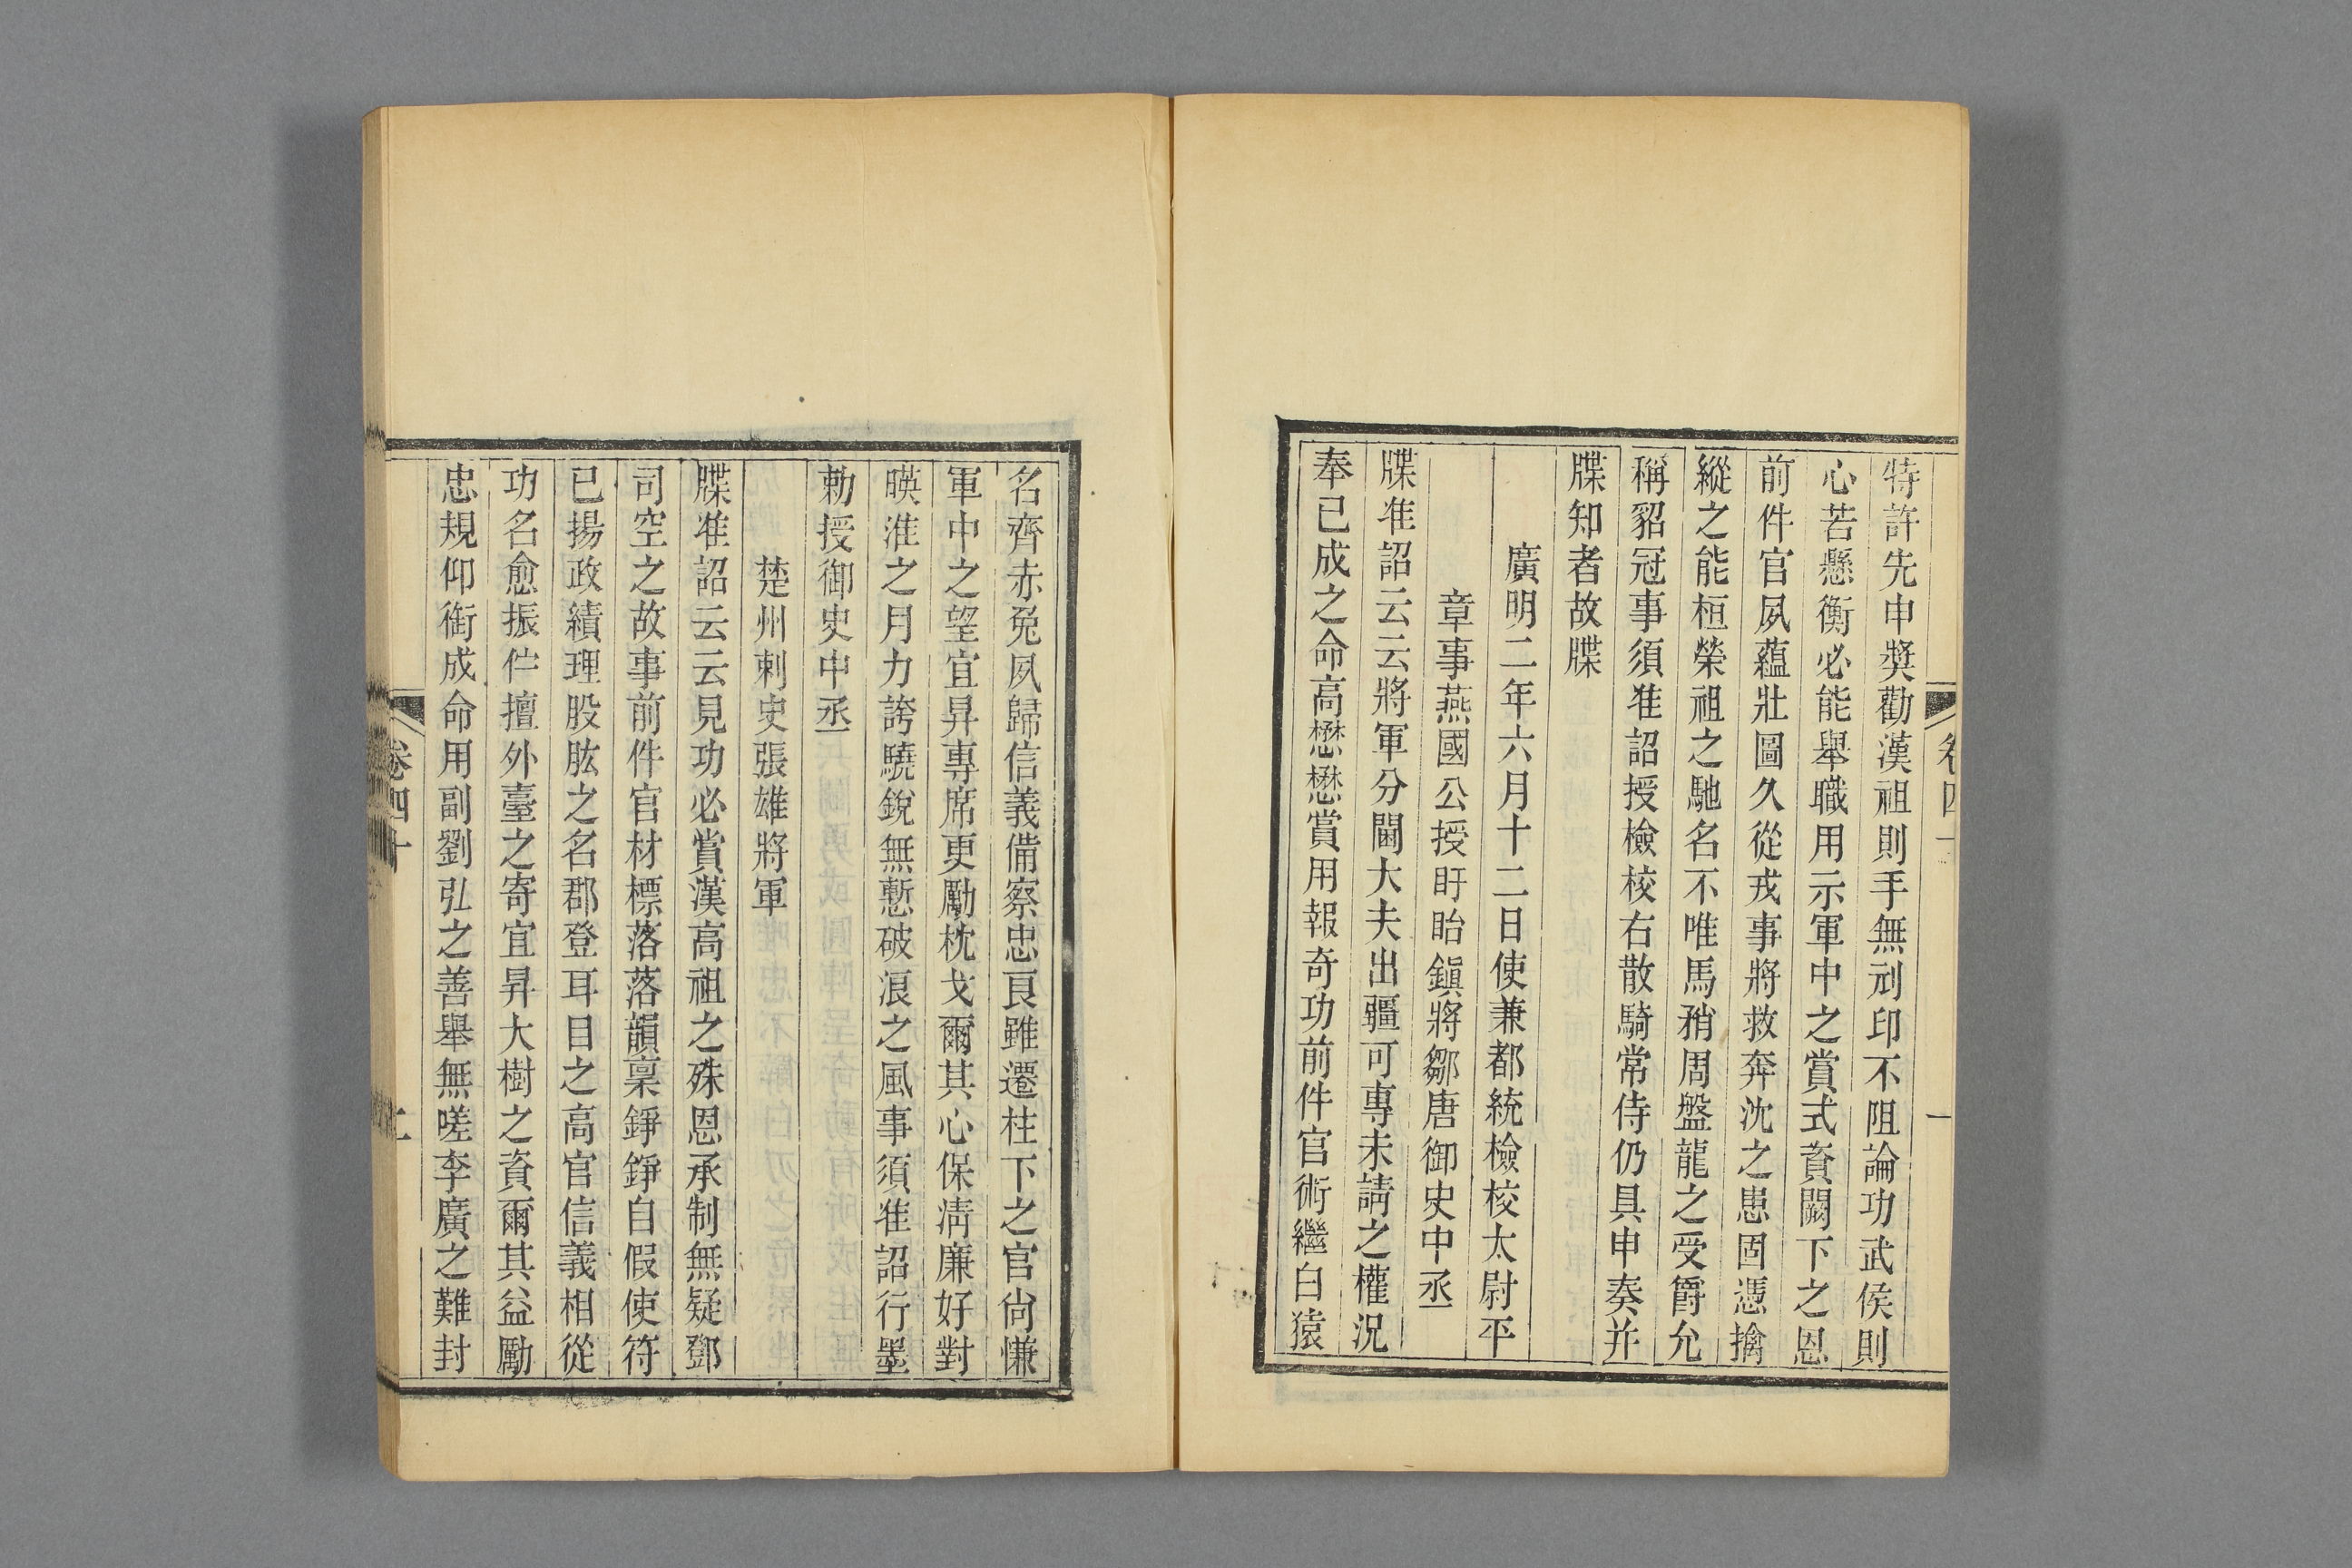 特許先申獎勸漢祖則手無刓印不阻論功武侯則
心若懸衡必能舉職用示軍中之賞式賚闕下之恩
前件官夙蘊壯圖久從戎事將救奔沈之患固憑擒
縱之能桓榮祖之馳名不唯馬矟周盤龍之受爵允
稱貂冠事須准詔授檢校右散騎常侍仍具申奏并
牒知者故牒
廣明二年六月十二日使兼都統檢校太尉平
章事燕國公授盱眙鎭將鄒唐御史中丞
牒准詔云云將軍分閫大夫出疆可專未請之權況
奉已成之命高懋懋賞用報奇功前件官術繼白猿
名齊赤兔夙歸信義備察忠良雖遷柱下之官尙慊
軍中之望宜昇專席更勵枕戈爾其心保淸廉好對
暎淮之月力誇驍銳無慙破浪之風事須准詔行墨
勅授御史中丞
楚州刺史張雄將軍
牒准詔云云見功必賞漢高祖之殊恩承制無疑鄧
司空之故事前件官材標落落韻稟錚錚自假使符
已揚政績理股肱之名郡登耳目之高官信義相從
功名愈振伫擅外臺之寄宜昇大樹之資爾其益勵
忠規仰銜成命用副劉弘之善舉無嗟李廣之難封
卷四十